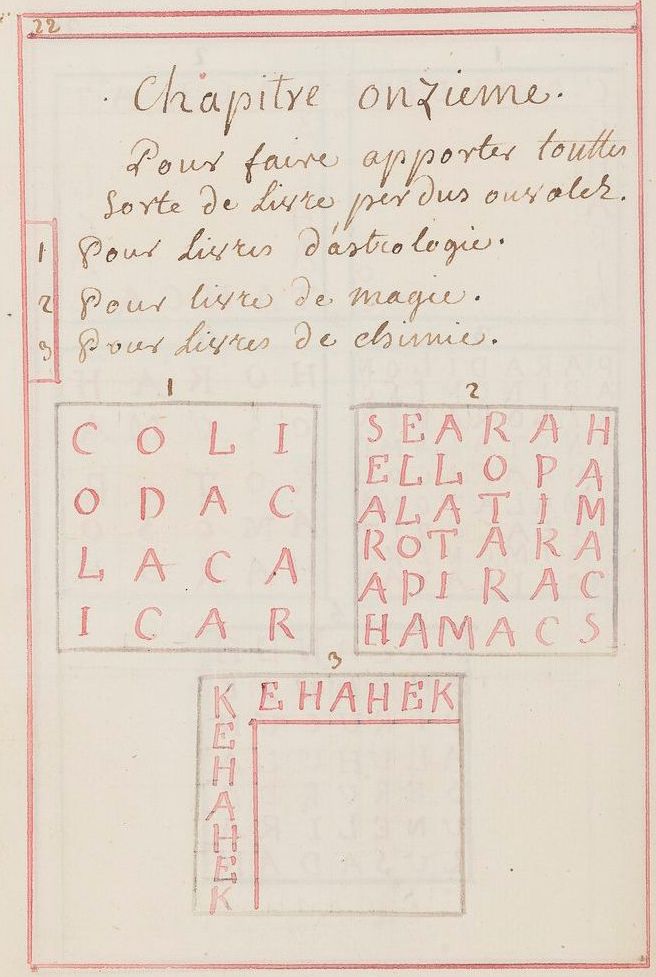 22
Chapitre onzieme.
Pour faire apporter touttes
sorte de livre perdus ou volez.
1 Pour livres d'astrologie.
2 Pour livre de magie.
3 Pour livres de chimie.
1
C O L I
O D A C
L A C A
I C A R
2
S E A R A H
E L L O P A
A L A T I M
R O T A R A
A P I R A C
H A M A C S
3
K E H A H E K
E
H
A
H
E
K